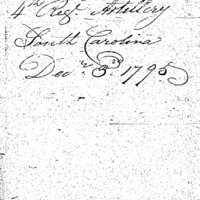 4th Regt Artillery
South Carolina
Decr 3rd 1795